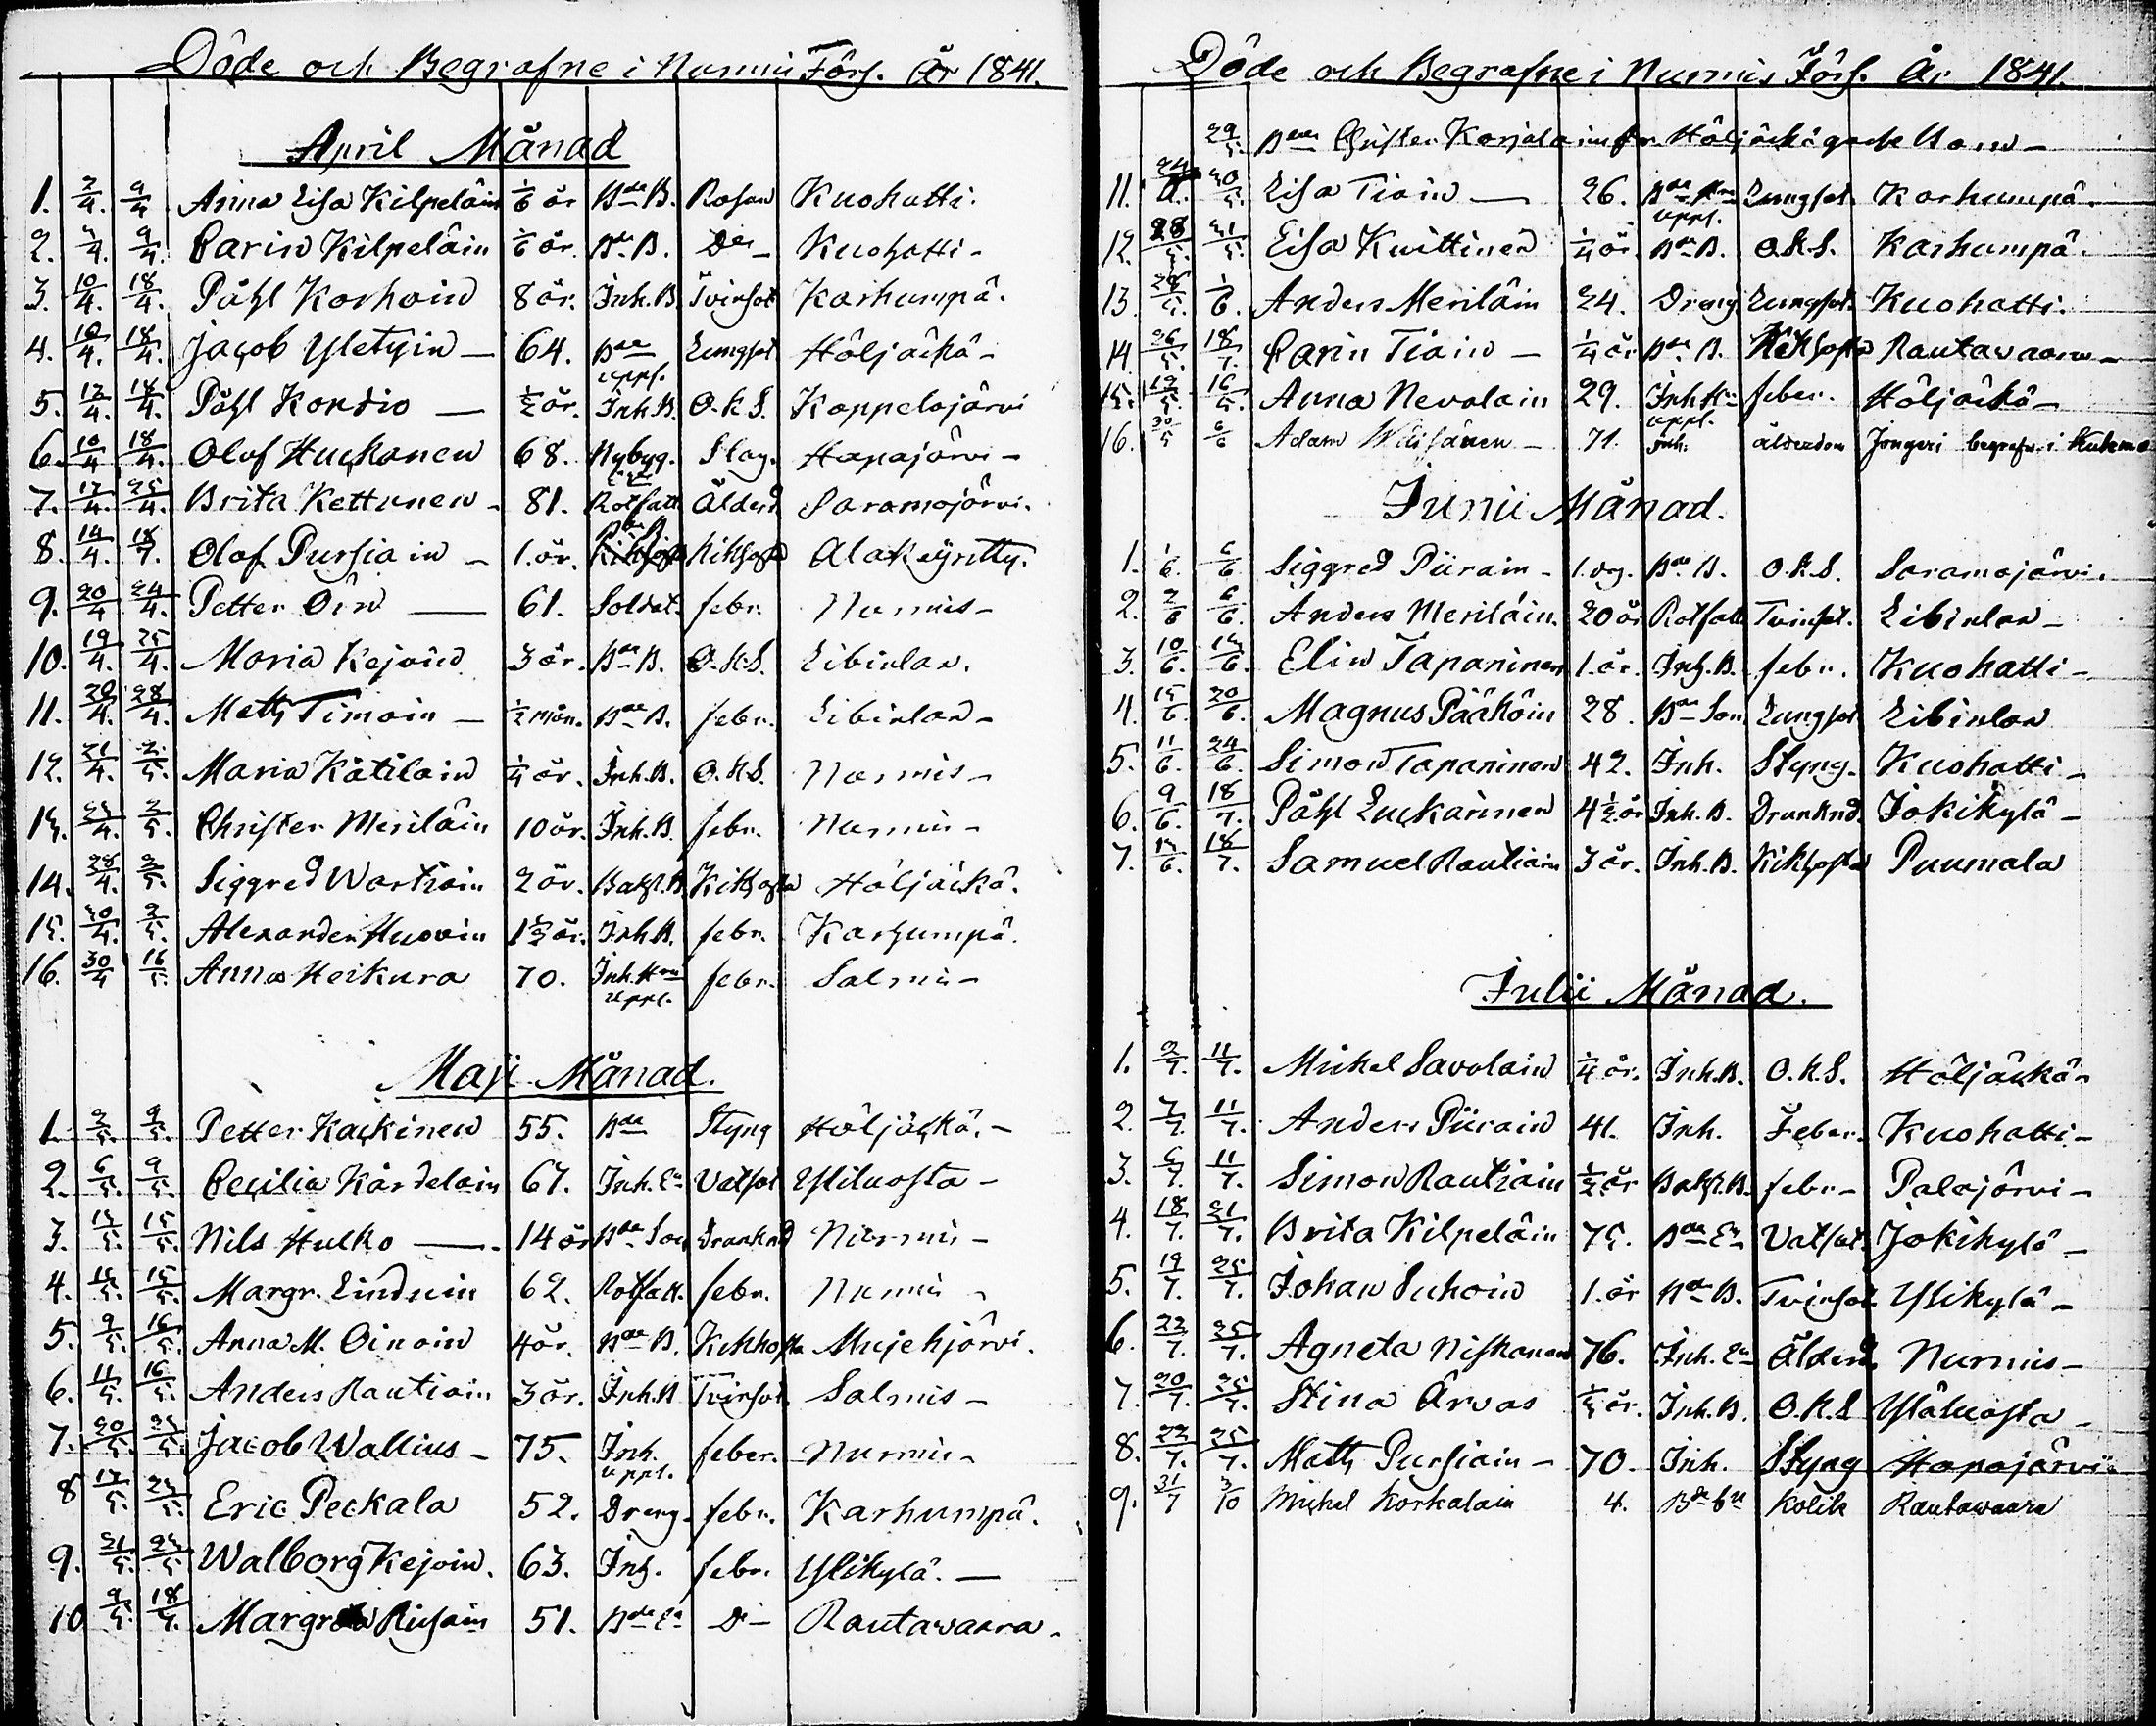 Döde och Begrafne i Nurmis Förs. År 1841.
April Månad
1. 2/4. 9/4 Anna Lisa Kilpeläin 1/6 år Bde B. Rosan Kuohatti.
2. 4/4. 9/4. Carin Kilpeläin 1/6 år. Bde B. Do - Kuohatti -
3. 10/4. 18/4. Påhl Korhoin 8 år. Inh. B. Tvinsot Karhumpä.
4. 10/4. 18/4. Jacob Yletyin - 64. Bde Lungsot Höljäckä -
uppl.
5. 12/4. 18/4. Påhl Kontio - 1/2 år. Inh. B. O.k.S. Koppelojärvi
6. 10/4 18/4. Olof Huckanen 68. Nybyg. Slag. Hapajärvi -
7. 17/4. 25/4. Brita Kettunen - 81. Rotfatt Ålderd Saramojärvi.
8. 14/4. 18/7. Olof Pursiain - 1. år. Bde B Kikhosta Alakeyritty.
9. 20/4 24/4. Petter Öin - 61. Soldat. febr. Nurmis -
10. 19/4. 25/4. Maria Kejoin 3 år. Bde B. O.k.S. Libinlax.
11. 20/4. 28/4. Matts Timoin - 1/2 mån. Bde B. febr. Libinlax -
12. 21/4. 2/5. Maria Kätilain 1/4 år. Inh. B. O.k.S. Nurmis -
13. 23/4. 2/5. Christer Meriläin 10 år. Inh. B. febr. Nurmis -
14. 28/4. 2/5. Siggred Wartiain 2 år. Backst. B Kikhosta Höljäckä.
15. 30/4. 2/5. Alexander Huovin 1 1/2 år. Inh. B. febr. Karhumpä.
16. 30/4 16/5. Anna Heikura 70. Inh. Hru febr. Salmis -
uppl.
Maji Månad.
1. 2/5. 9/5. Petter Kackinen 55. Bde Styng Höljäckä. -
2. 6/5. 9/5. Cecilia Kärdelain 67. Inh. En Vatsot Yliluosta -
3. 13/5. 15/5. Nils Hulko - 14 år Bde Son Drunknd Nurmis -
4. 11/5. 15/5. Margr. Lindvin 62. Rotfatt. febr. Nurmis -
5. 9/5. 16/5. Anna M. Oinoin 4 år. Bde B. Kikhosta Mujehjärvi.
6. 11/5. 16/5. Anders Rautiain 3 år. Inh. B Tvinsot. Salmis -
7. 20/5. 23/5. Jacob Wallius - 75. Inh. feber. Nurmis -
uppl.
8 17/5. 23/5. Eric Peckala 52. Dreng. febr. Karhumpä.
9. 21/5. 23/5 Walborg Kejoin. 63. Inh. febr. Ylikylä. -
10 9/5. 18/7. Margreta Risain 51. Bde En Do - Rautawaara -
Döde och Begrafne i Nurmis Förs. År 1841.
29/5. Bden Christer Karjalainen fr. Höljäckä
11. 24/5. 30/5. Lisa Tiain - 26. Bde Hru Lungsot. Karhumpä.
uppl.
12. 28/5. 31/5. Lisa Kuittinen 1/4 år. Bde B. O.k.S. Karhumpä.
13. 28/5. 1/6. Anders Meriläin 24. Dreng Lungsot. Kuohatti.
14. 26/5. 18/7. Carin Tiain - 1/4 år Bde B. Kikhosta Rautawaara -
15. 12/5. 16/5. Anna Nevalain 29. Inh. Hru feber. Höljäckä -
uppl.
16. 30/5 6/6 Adam Wäisänen - 71. Inh. ålderdom Jongeri begrafn i Kuhmo
Junii Månad.
1. 1/6. 6/6 Siggred Piirain - 1. dag. Bde B. O.k.S. Saramojärvi.
2. 2/6 6/6. Anders Meriläin. 20 år Rotfatt Tvinsot. Libinlax -
3. 10/6. 13/6. Elin Tapaninen 1. år. Inh. B. febr. Kuohatti -
4. 15/6. 20/6. Magnus Pääköin 28. Bde Son Lungsot Libinlax
5. 11/6. 24/6. Simon Tapaninen 42. Inh. Styng. Kuohatti -
6. 9/6. 18/7. Påhl Luckarinen 4 1/2 år Inh. B. Drunknd. Jokikylä -
7. 13/6. 18/7. Samuel Rautiain 3 år. Inh. B. Kikhosta Puumala
Julii Månad.
1. 2/7. 11/7. Michel Savolain 1/4 år. Inh. B. O.k.S. Höljäckä -
2. 7/7. 11/7. Anders Piirain 41. Inh. Feber. Kuohatti -
3. 6/7. 11/7. Simon Rautiain 1/2 år Backst. B. febr. - Palojärvi -
4. 18/7. 21/7. Brita Kilpeläin 75. Bde En Vatsot. Jokikylä -
5. 19/7. 25/7. Johan Suhoin 1. år Bde B. Tvinsot. Ylikylä -
6. 22/7. 25/7. Agneta Niskanen 76. Inh. En Ålderd. Nurmis -
7. 20/7. 25/7. Stina Ärvas år. Inh. B. O.k.S Yliluosta -
8. 22/7. 25/7. Matts Pursiain - 70. Inh. Styng Hapajärvi -
9. 31/7 3/10 Michel Korkalain 4. Bde bn Kolik Rautawaara